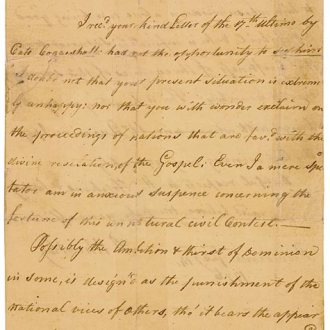 I rec.d your kind Letter of the 17.th Ultimo by
Cato Coggeshall: had not the opportunity to see him
I doubt not that your present situation is extrem
ly unhappy: nor that you with wonder exclaim on
the proceedings of nations that are fav.d with the
divine revelation, of the Gospel: Even I a mere Spec
tator am in anxious suspence concerning the
fortune of this unnatural civil Contest.—
Possibly the Ambition & thirst of Dominion
in some, is design'd as the punishment of the
national vices of others, tho' it bears the appear